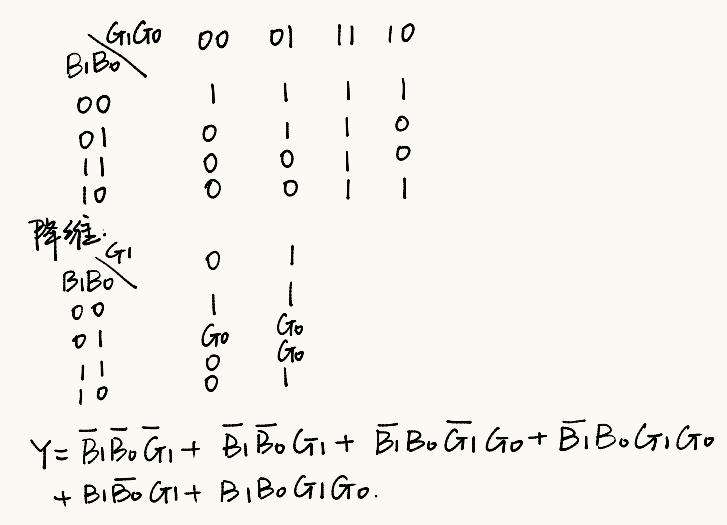 G₁G₀ 00 01 11 10
B₁B₀
00 1 1 1 1
01 0 1 1 0
11 0 0 1 0
10 0 0 1 1
降维:
G₁ 0 1
B₁B₀
00 1 1
01 G₀ G₀
11 0 G₀
10 0 1
Y = B̅₁B̅₀G̅₁ + B̅₁B̅₀G₁ + B̅₁B₀G̅₁G₀ + B̅₁B₀G₁G₀
+ B₁B̅₀G₁ + B₁B₀G₁G₀.